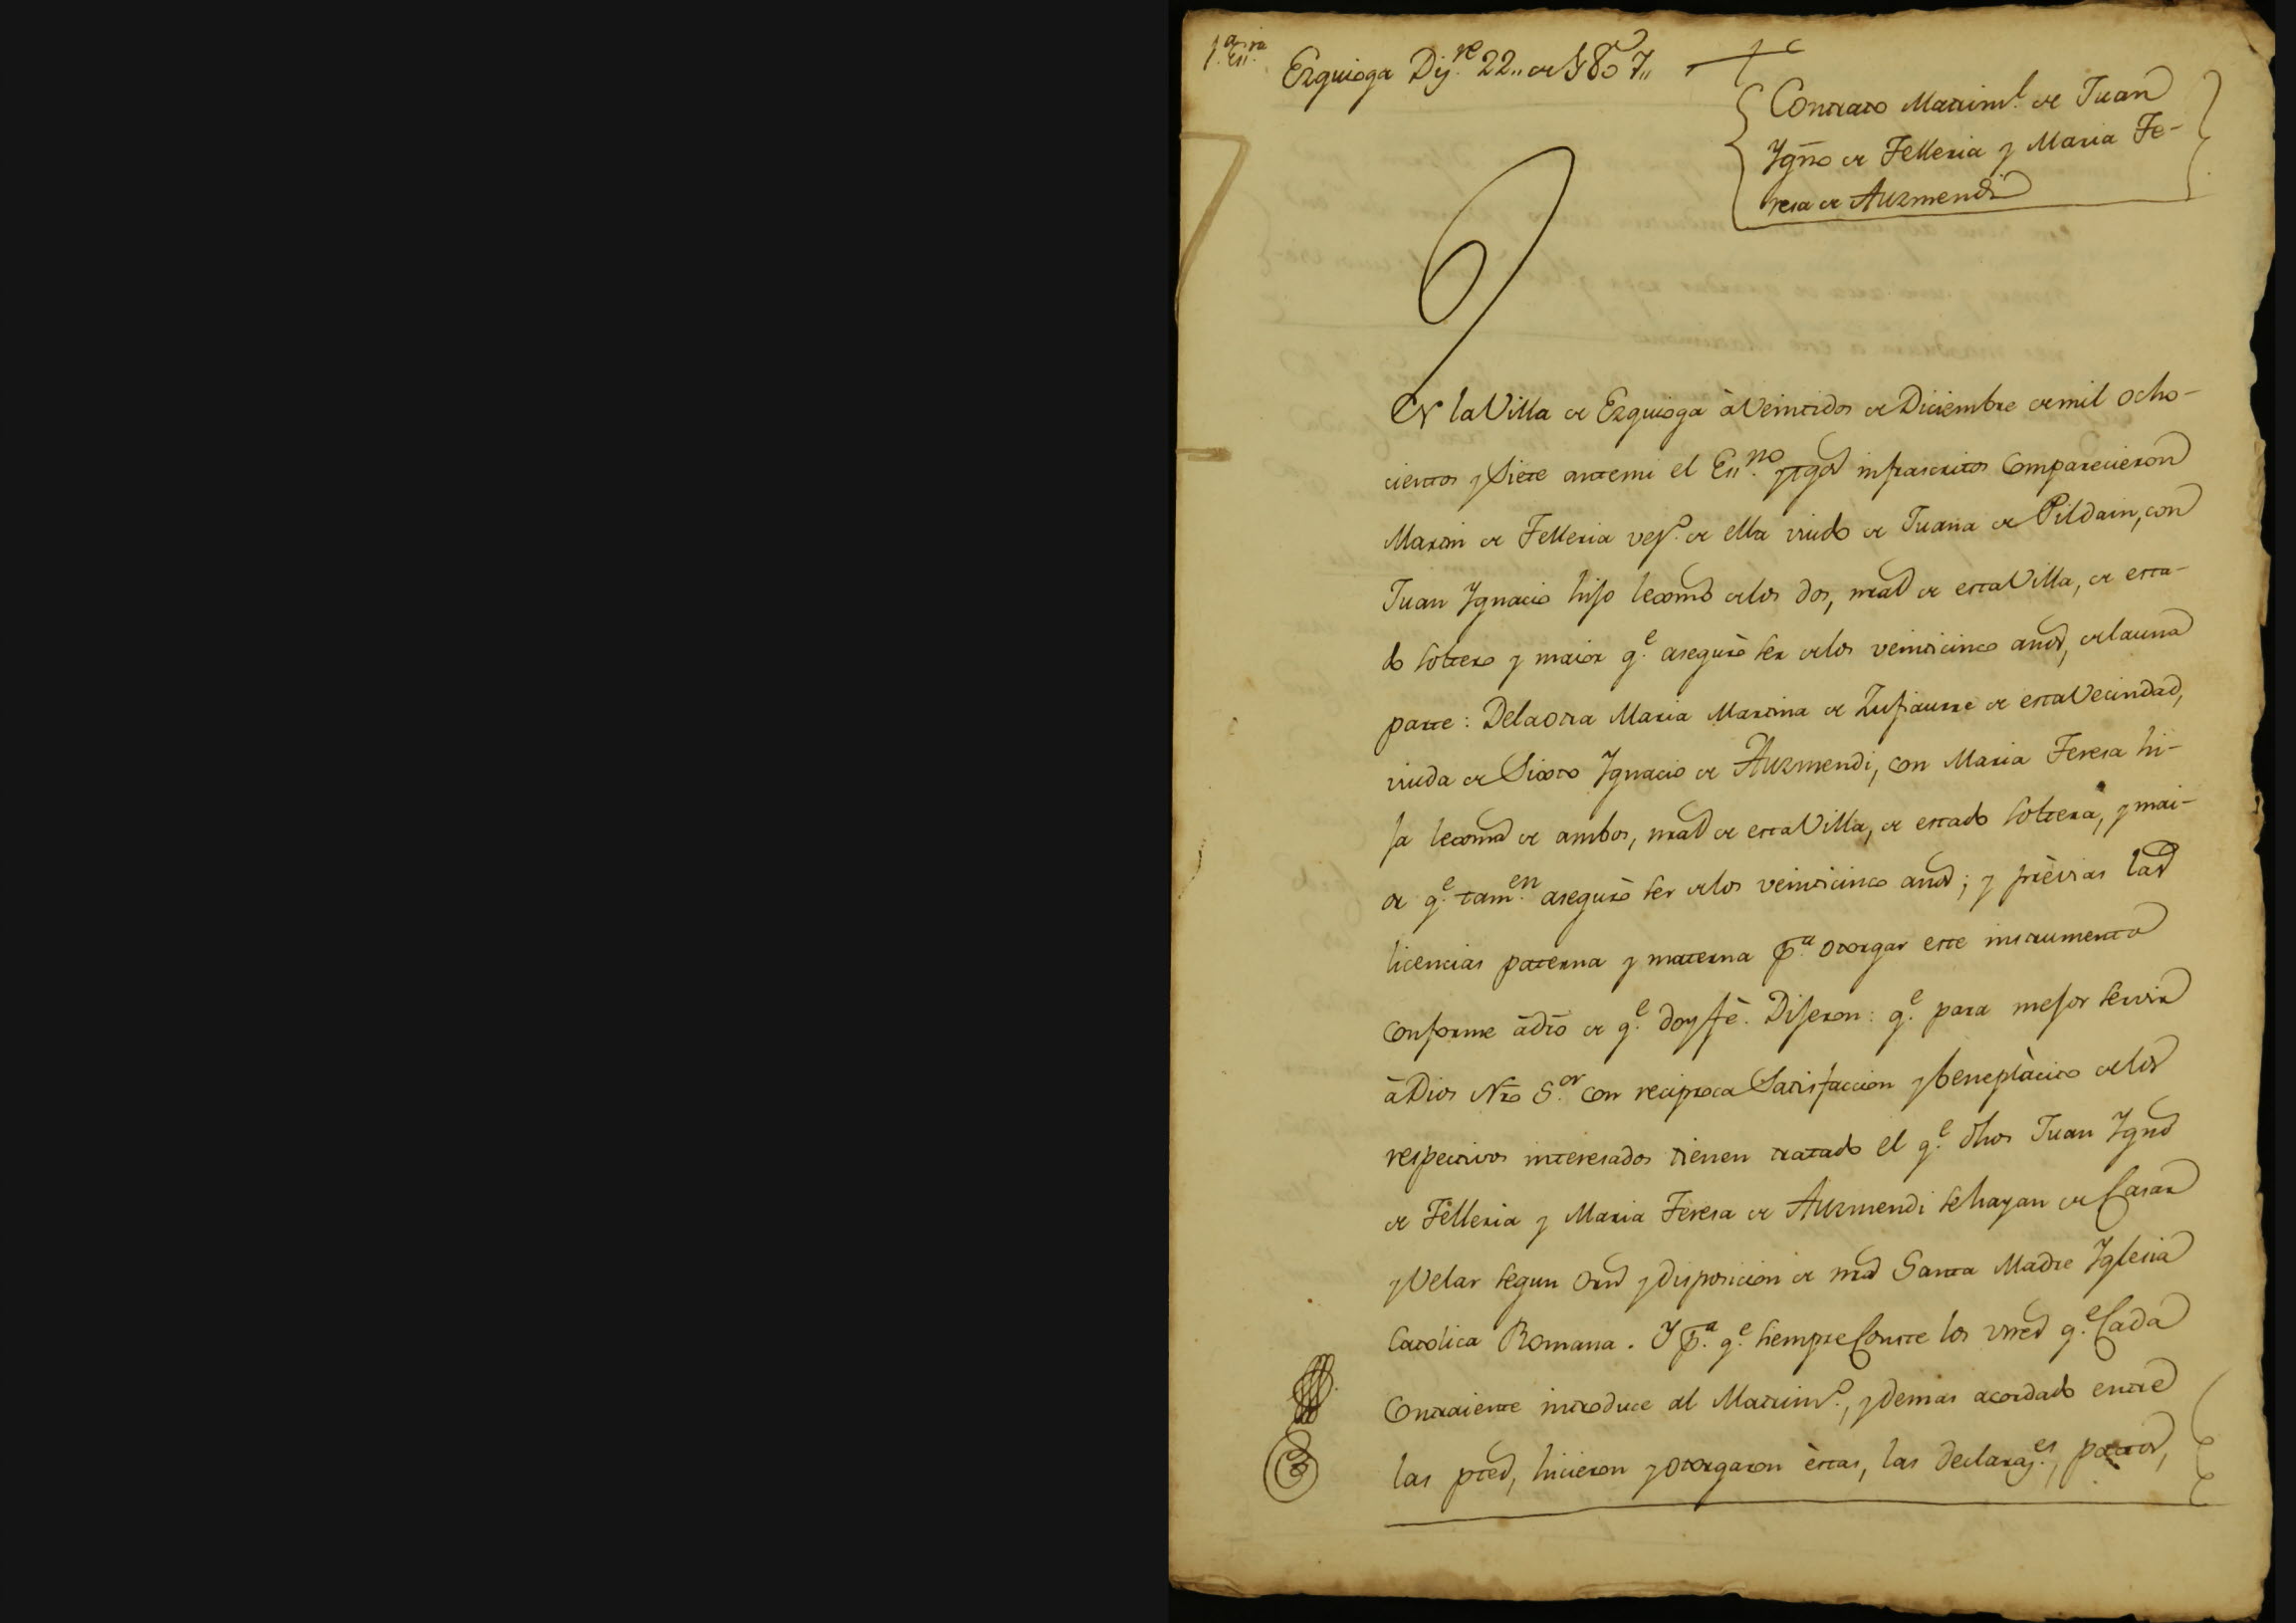 1.ª Es.ra
Ezquioga Diz.re 22,, de 1807,,
Contrato Matriml. de Juan
Ygño de Telleria y Maria Te-
resa de Auzmendi
En la Villa de Ezquioga à Veintidos de Diciembre de mil ocho-
cientos y Siete antemi el Ess.no y tgos infrascritos Comparecieron
Martin de Telleria vezº. de ella viudo de Juana de Pildain, con
Juan Ygnacio hijo lexmo de los dos, nral de esta Villa, de esta-
do soltero y maior q.e asegurò ser de los veinticinco años, de la una
parte: De la otra Maria Martina de Zufiaurre de esta Vecindad,
viuda de Sixto Ygnacio de Auzmendi, con Maria Teresa hi-
ja lexma de ambos, nral de esta Villa, de estado soltera, y mai-
or q.e tam.en asegurò ser de los veinticinco años; y prèvias las
licencias paterna y materna p.a otorgar este instrumento
Conforme à dro de q.e doy fè. Dijeron: q.e para mejor servir
à Dios Nro S.or con reciproca Satisfaccion y beneplàcito de los
respectivos interesados tienen tratado el q.e dhos Juan Ygno
de Telleria y Maria Teresa de Auzmendi se hayan de Casar
y Velar segun orn y disposicion de nra Santa Madre Yglesia
Catolica Romana. Y p.a q.e siempre Conste los vnes q.e Cada
Contraiente introduce al Matrimº., y demas acordado entre
las ptes, hicieron y otorgaron èstas, las declaraz.es, pactos,